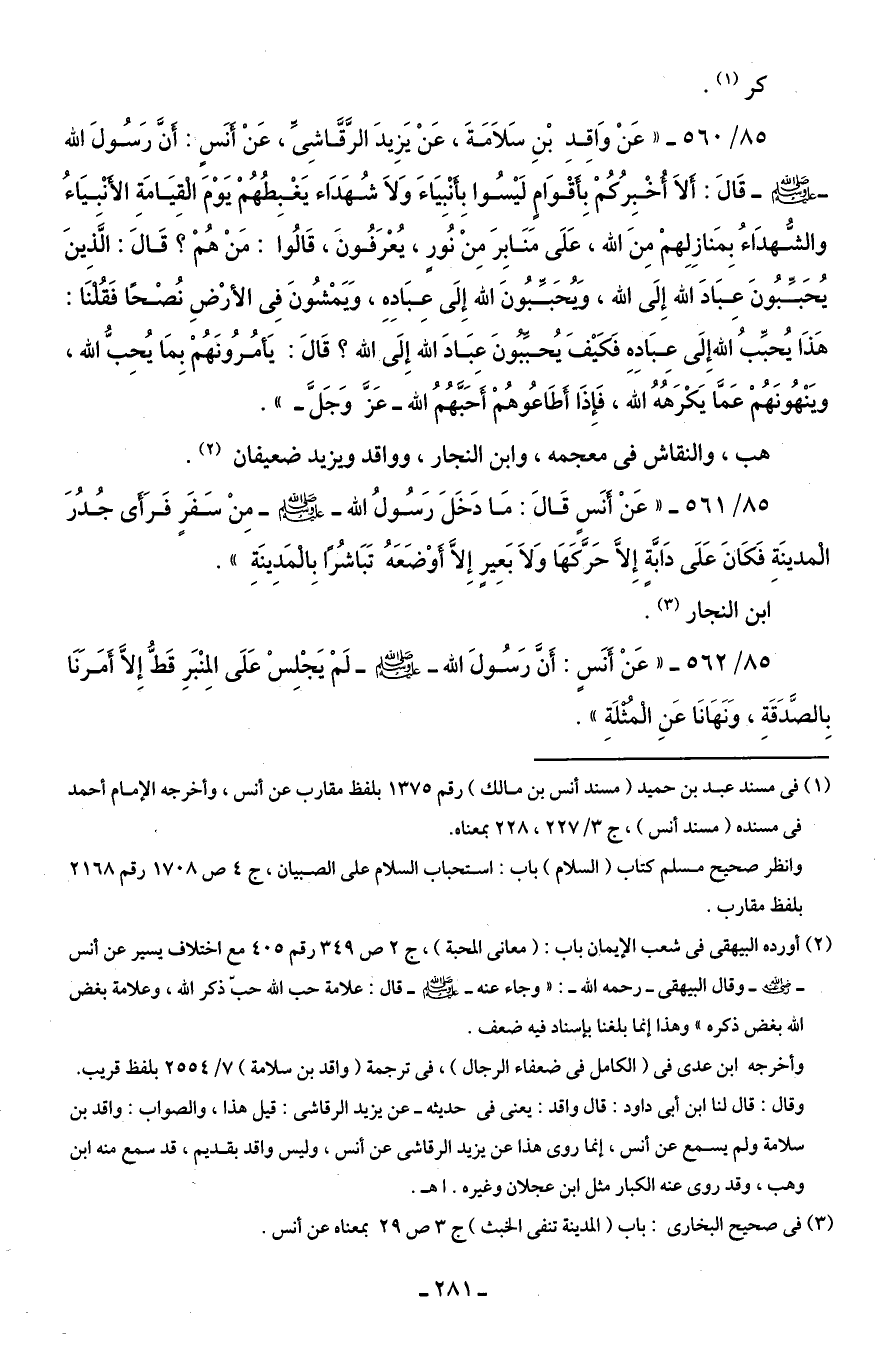 كر (١) .
٨٥/ ٥٦٠ ـ « عَنْ وَاقِدِ بْنِ سَلاَمَةَ ، عَنْ يَزِيدَ الرَّقَّاشِىِّ ، عَنْ أَنَسٍ : أَنَّ رَسُولَ الله
ـ ﷺ ـ قَالَ : أَلاَ أُخْبِرُكُمْ بِأَقْوَامٍ لَيْسُوا بِأَنْبِيَاءَ وَلاَ شُهَدَاء يَغْبِطُهُمْ يَوْمَ القِيَامَةِ الأَنْبِيَاءُ
والشُّهدَاءُ بِمَنَازِلِهِمْ مِنَ الله ، عَلَى مَنَابِرَ مِنْ نُورٍ ، يُعْرَفُونَ ، قَالُوا : مَنْ هُمْ ؟ قَالَ : الَّذِينَ
يُحَبِّبُونَ عِبَادَ الله إِلَى الله ، وَيُحَبِّبُونَ الله إِلَى عِبَادِهِ ، وَيَمْشُونَ فِى الأَرْضِ نُصْحًا فَقُلْنَا :
هَذَا يُحبِّبُ اللهَ إِلَى عِبَادِهِ فَكَيْفَ يُحبِّبُونَ عِبَادَ الله إِلَى الله ؟ قَالَ : يَأمُرُونَهُمْ بِمَا يُحِبُّ الله ،
وَيَنْهُونَهُمْ عَمَّا يَكْرَهُهُ الله ، فَإِذَا أَطَاعُوهُمْ أَحَبَّهُمُ الله ـ عَزَّ وَجَلَّ ـ » .
هب ، والنقاش فى معجمه ، وابن النجار ، وواقد ويزيد ضعيفان (٢) .
٨٥/ ٥٦١ ـ « عَنْ أَنَسٍ قَالَ : مَا دَخَلَ رَسُولُ الله ـ ﷺ ـ مِنْ سَفَرٍ فَرَأَى جُدُرَ
الْمدينَةِ فَكَانَ عَلَى دَابَّةٍ إِلاَّ حَرَّكَهَا وَلاَ بَعِيرٍ إِلاَّ أَوْضَعَهُ تَبَاشُرًا بِالْمَدِينَةِ » .
ابن النجار (٣) .
٨٥/ ٥٦٢ ـ « عَنْ أَنَسٍ : أَنَّ رَسُولَ الله ـ ﷺ ـ لَمْ يَجْلِسْ عَلَى المِنْبَرِ قَطُّ إِلاَّ أَمَرَنَا
بِالصَّدَقَةِ ، وَنَهَانَا عَنِ الْمُثْلَةِ » .
(١) فى مسند عبد بن حميد ( مسند أنس بن مالك ) رقم ١٣٧٥ بلفظ مقارب عن أنس ، وأخرجه الإمام أحمد
فى مسنده ( مسند أنس ) ، ج ٣/ ٢٢٧ ، ٢٢٨ بمعناه.
وانظر صحيح مسلم كتاب ( السلام ) باب : استحباب السلام على الصبيان ، ج ٤ ص ١٧٠٨ رقم ٢١٦٨
بلفظ مقارب .
(٢) أورده البيهقى فى شعب الإيمان باب : ( معانى المحبة ) ، ج ٢ ص ٣٤٩ رقم ٤٠٥ مع اختلاف يسير عن أنس
ـ رضي الله عنه ـ وقال البيهقى ـ رحمه الله ـ : « وجاء عنه ـ ﷺ ـ قال : علامة حب الله حبّ ذكر الله ، وعلامة بغض
الله بغض ذكره » وهذا إنما بلغنا بإسناد فيه ضعف .
وأخرجه ابن عدى فى ( الكامل فى ضعفاء الرجال ) ، فى ترجمة ( واقد بن سلامة ) ٧/ ٢٥٥٤ بلفظ قريب.
وقال : قال لنا ابن أبى داود : قال واقد : يعنى فى حديثه ـ عن يزيد الرقاشى : قيل هذا ، والصواب : واقد بن
سلامة ولم يسمع عن أنس ، إنما روى هذا عن يزيد الرقاشى عن أنس ، وليس واقد بقديم ، قد سمع منه ابن
وهب ، وقد روى عنه الكبار مثل ابن عجلان وغيره . ا هـ .
(٣) فى صحيح البخارى : باب ( المدينة تنفى الخبث ) ج ٣ ص ٢٩ بمعناه عن أنس .
ـ ٢٨١ ـ